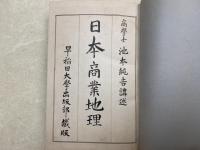 商學士 池本純吉講述
日本商業地理
早稻田大學出版部藏版